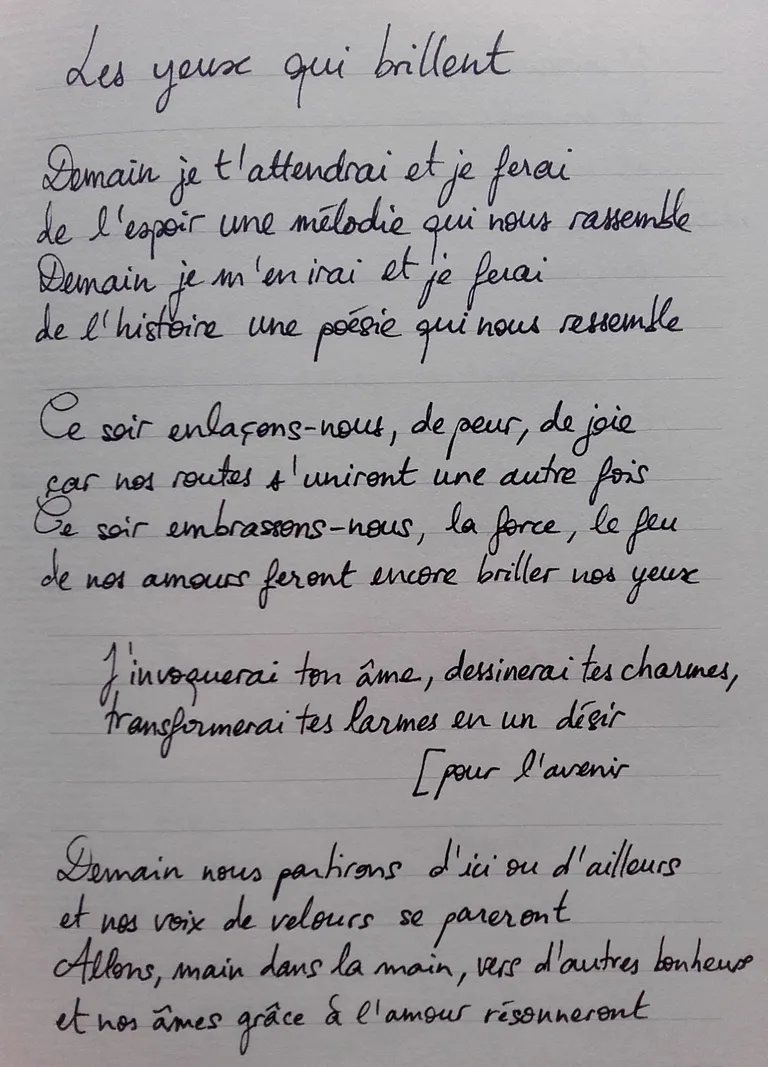 Les yeux qui brillent
Demain je t'attendrai et je ferai
de l'espoir une mélodie qui nous rassemble
Demain je m'en irai et je ferai
de l'histoire une poésie qui nous ressemble
Ce soir enlaçons-nous, de peur, de joie
car nos routes s'uniront une autre fois
Ce soir embrassons-nous, la force, le feu
de nos amours feront encore briller nos yeux
J'invoquerai ton âme, dessinerai tes charmes,
transformerai tes larmes en un désir
[pour l'avenir
Demain nous partirons d'ici ou d'ailleurs
et nos voix de velours se pareront
Allons, main dans la main, vers d'autres bonheurs
et nos âmes grâce à l'amour résonneront